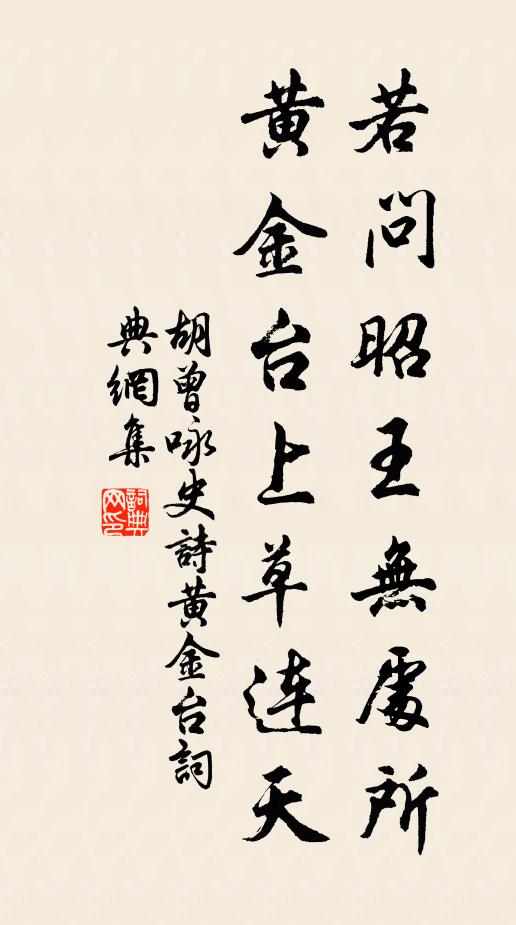 若問昭王無處所
黃金台上草连天
胡曾咏史詩黃金台詞
典網集
詞典
网印